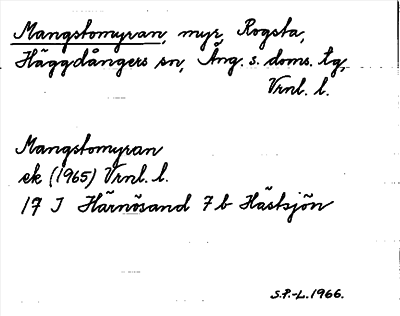 Mangstomyran, myr, Rogsta,
Häggdångers sn, Ång. s. doms. tg,
Vrnl. l.
Mangstomyran
ek (1965) Vrnl. l.
17 J Härnösand 7 b Hästsjön
S.P.-L. 1966.